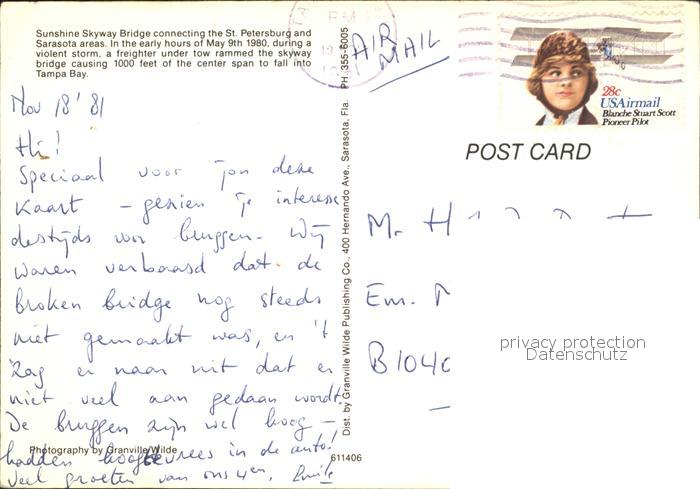 Sunshine Skyway Bridge connecting the St. Petersburg and
Sarasota areas. In the early hours of May 9th 1980, during a
violent storm, a freighter under tow rammed the skyway
bridge causing 1000 feet of the center span to fall into
Tampa Bay.
Nov 18' 81
Hi!
Speciaal voor jou deze
kaart - gezien je interesse
destijds voor bruggen. Wij
waren verbaasd dat de
broken bridge nog steeds
niet gemaakt was, en 't
zag er naar uit dat er
niet veel aan gedaan wordt.
De bruggen zijn wel hoog -
Photography by Granville Wilde
hadden hoogtevrees in de auto!
veel groeten van ons 4en, Emile
611406
Dist. by Granville Wilde Publishing Co., 400 Hernando Ave., Sarasota, Fla. PH. 355-6005
PM
AIR
MAIL
28c
USAirmail
Blanche Stuart Scott
Pioneer Pilot
POST CARD
M. H
Em. M
B1040
privacy protection
Datenschutz